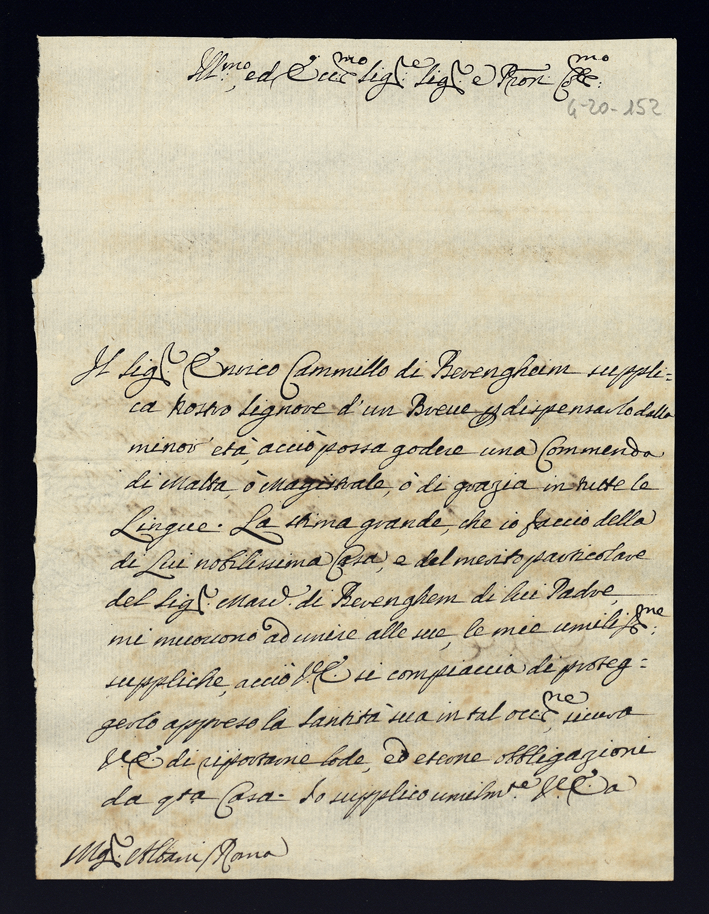 Ill.mo, ed Ecc.mo Sig.re Sig.r e Pron Col.mo
4-20-152
Il Sig.r Enrico Cammillo di Berengheim suppli=
ca Nostro Signore d'un Breve p dispensarlo dalla
minor età, acciò possa godere una Commenda
di Malta, ò Magistrale, ò di grazia in tutte le
Lingue. La stima grande, che io faccio della
di Lui nobilissima Casa, e del merito particolare
del Sig.r Mar. di Berenghem di lui Padre,
mi muovono ad unire alle sue, le mie umiliss.me
suppliche, acciò V.E. si compiaccia di proteg=
gerlo appreso la Santità sua in tal occ.ne, sicura
V.E. di riportarne lode, ed eterne obbligazioni
da qta Casa. Io supplico umilm.te V.E. a
Mg.r Albani Roma